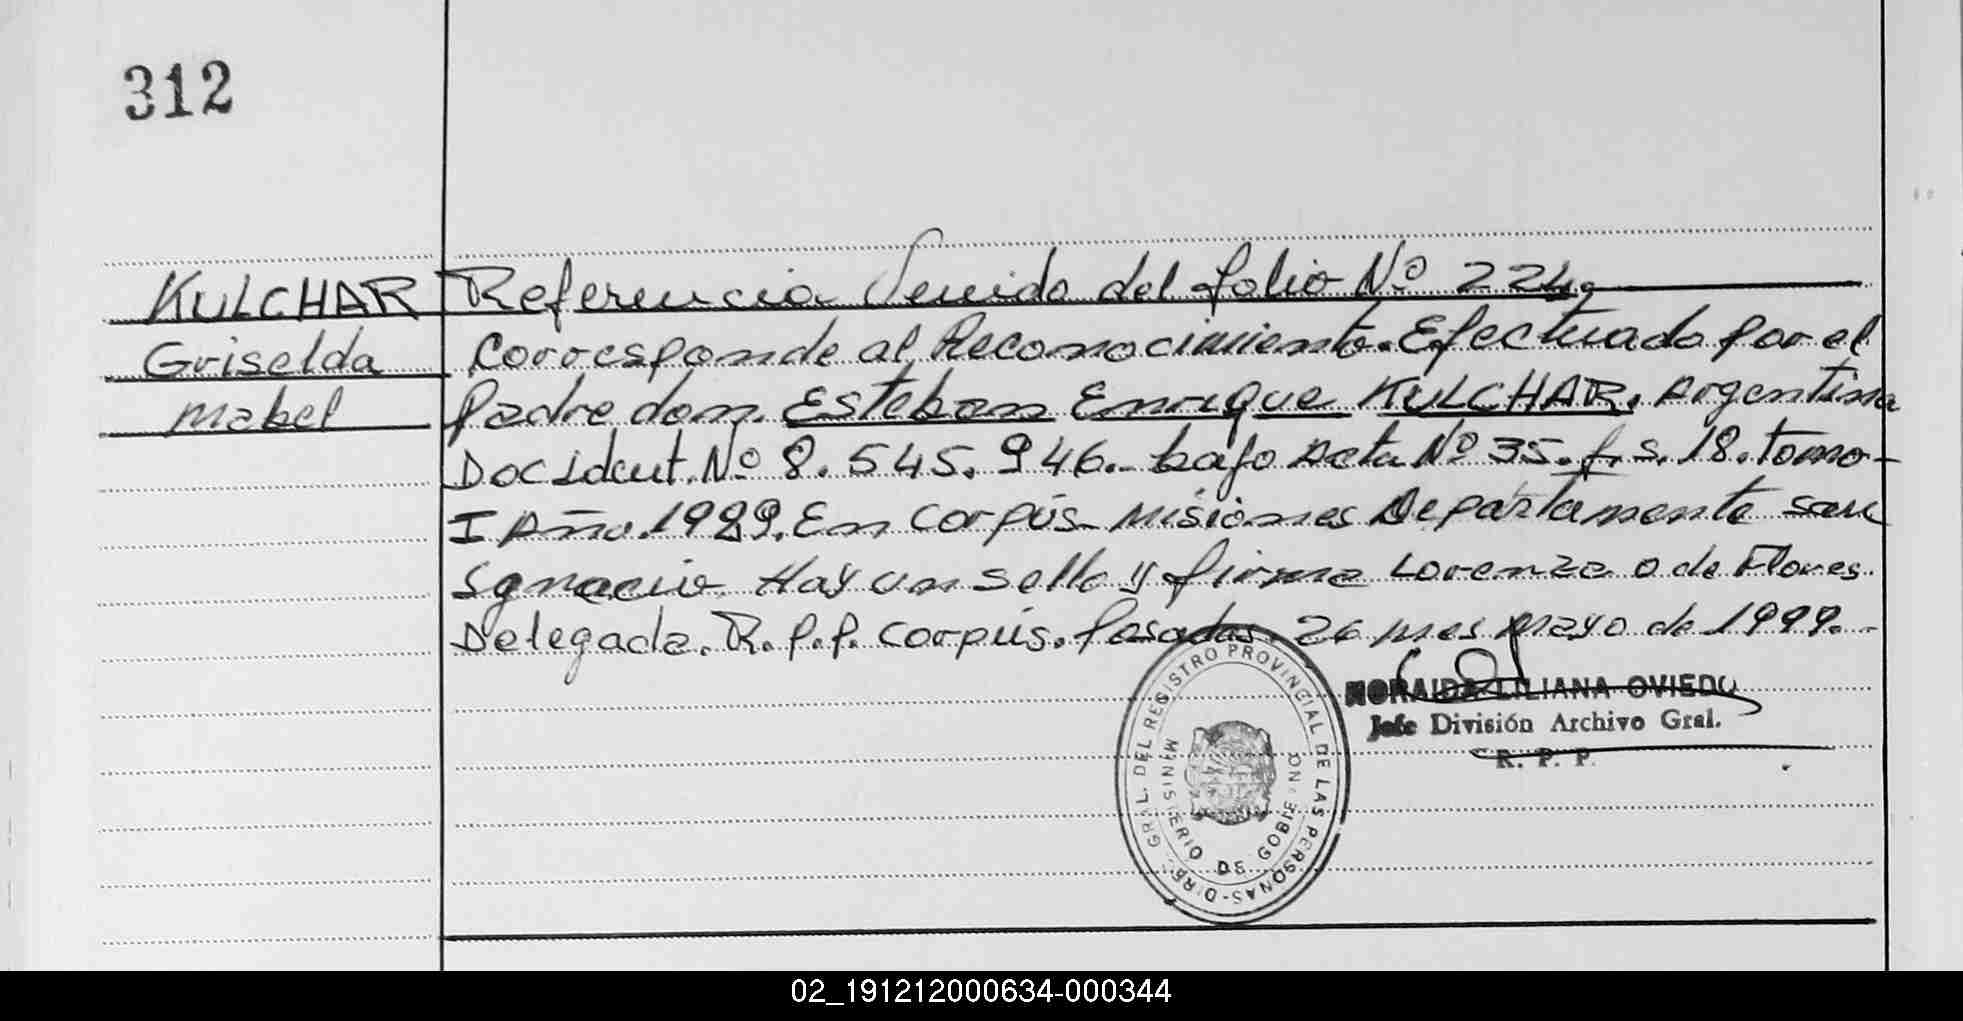 312
KULCHAR Referencia Venido del folio Nº 224,
Griselda Corresponde al Reconocimiento. Efectuado por el
Mabel Padre don. Esteban Enrique KULCHAR. Argentina
Doc Ident. Nº 8.545.946.- bajo Acta Nº 35. f.s. 18. tomo-
I Año. 1989. En Corpús- Misiones Departamento San
Ignacio. Hay un sello y firma Lorenza O de Flores.
Delegada. R.P.P. Corpús. Posadas. 26 mes mayo de 1999.-
NORAIDA LILIANA OVIEDO
Jefe División Archivo Gral.
R. P. P.
DIREC. GRAL. DEL REGISTRO PROVINCIAL DE LAS PERSONAS-
MINISTERIO DE GOBIERNO
02_191212000634-000344